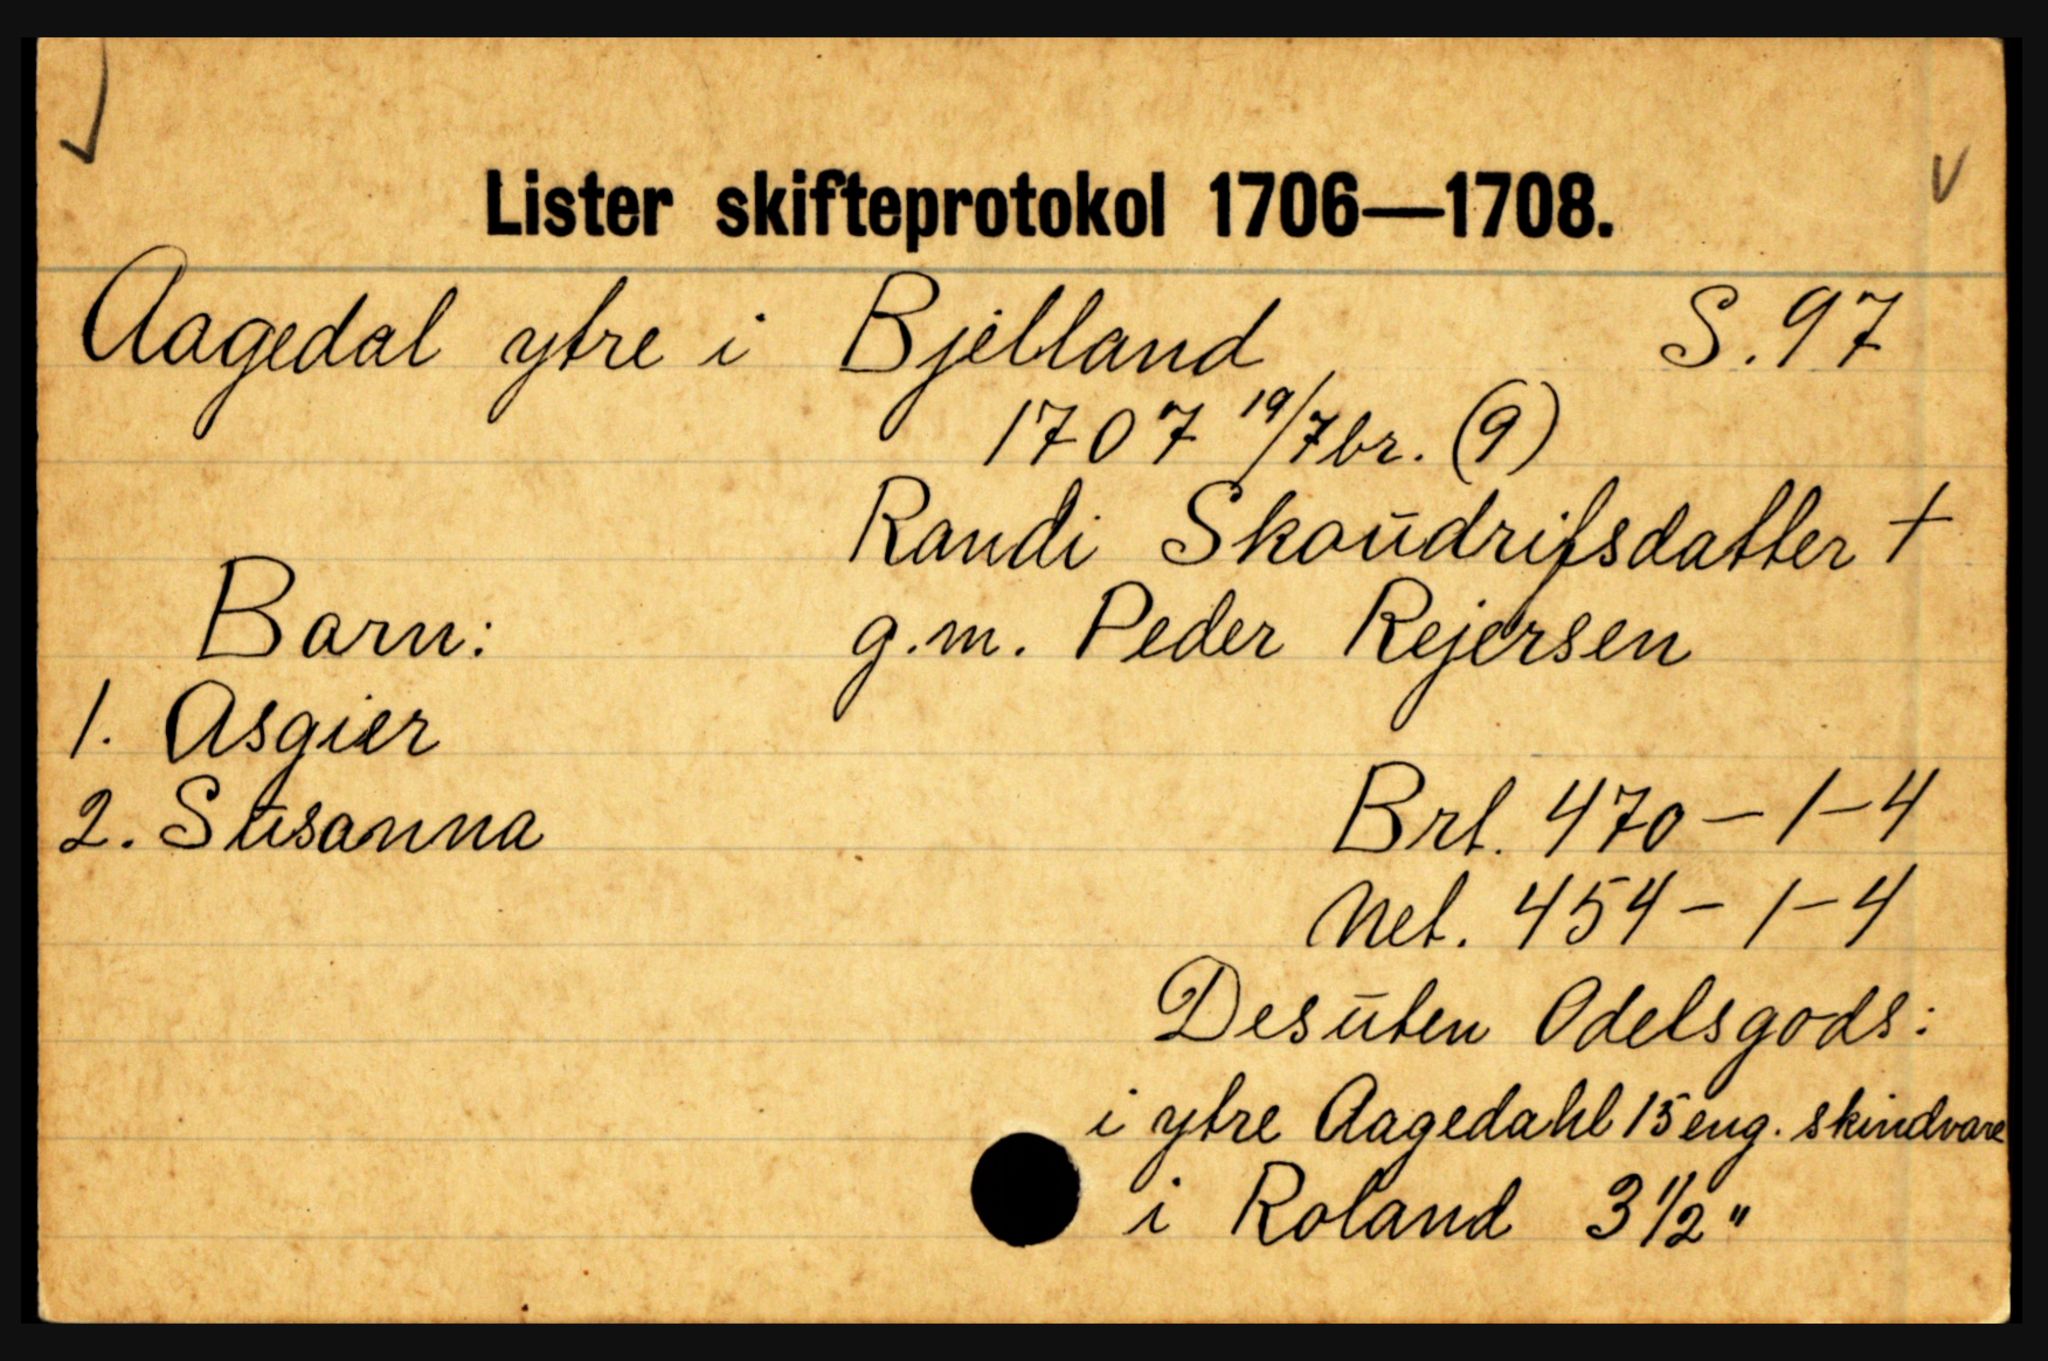 Lister skifteprotokol 1706—1708.
Aagedal ytre i Bjelland S. 97
1707 19/7br. (9)
Randi Skoudrifsdatter +
Barn: g.m. Peder Rejersen
1. Asgier
2. Susanna
Brt. 470 – 1 – 4
Net. 454 – 1 – 4
Desuten Odelsgods:
i ytre Aagedahl 15 eng. skindvare
i Roland 3 1/2 "